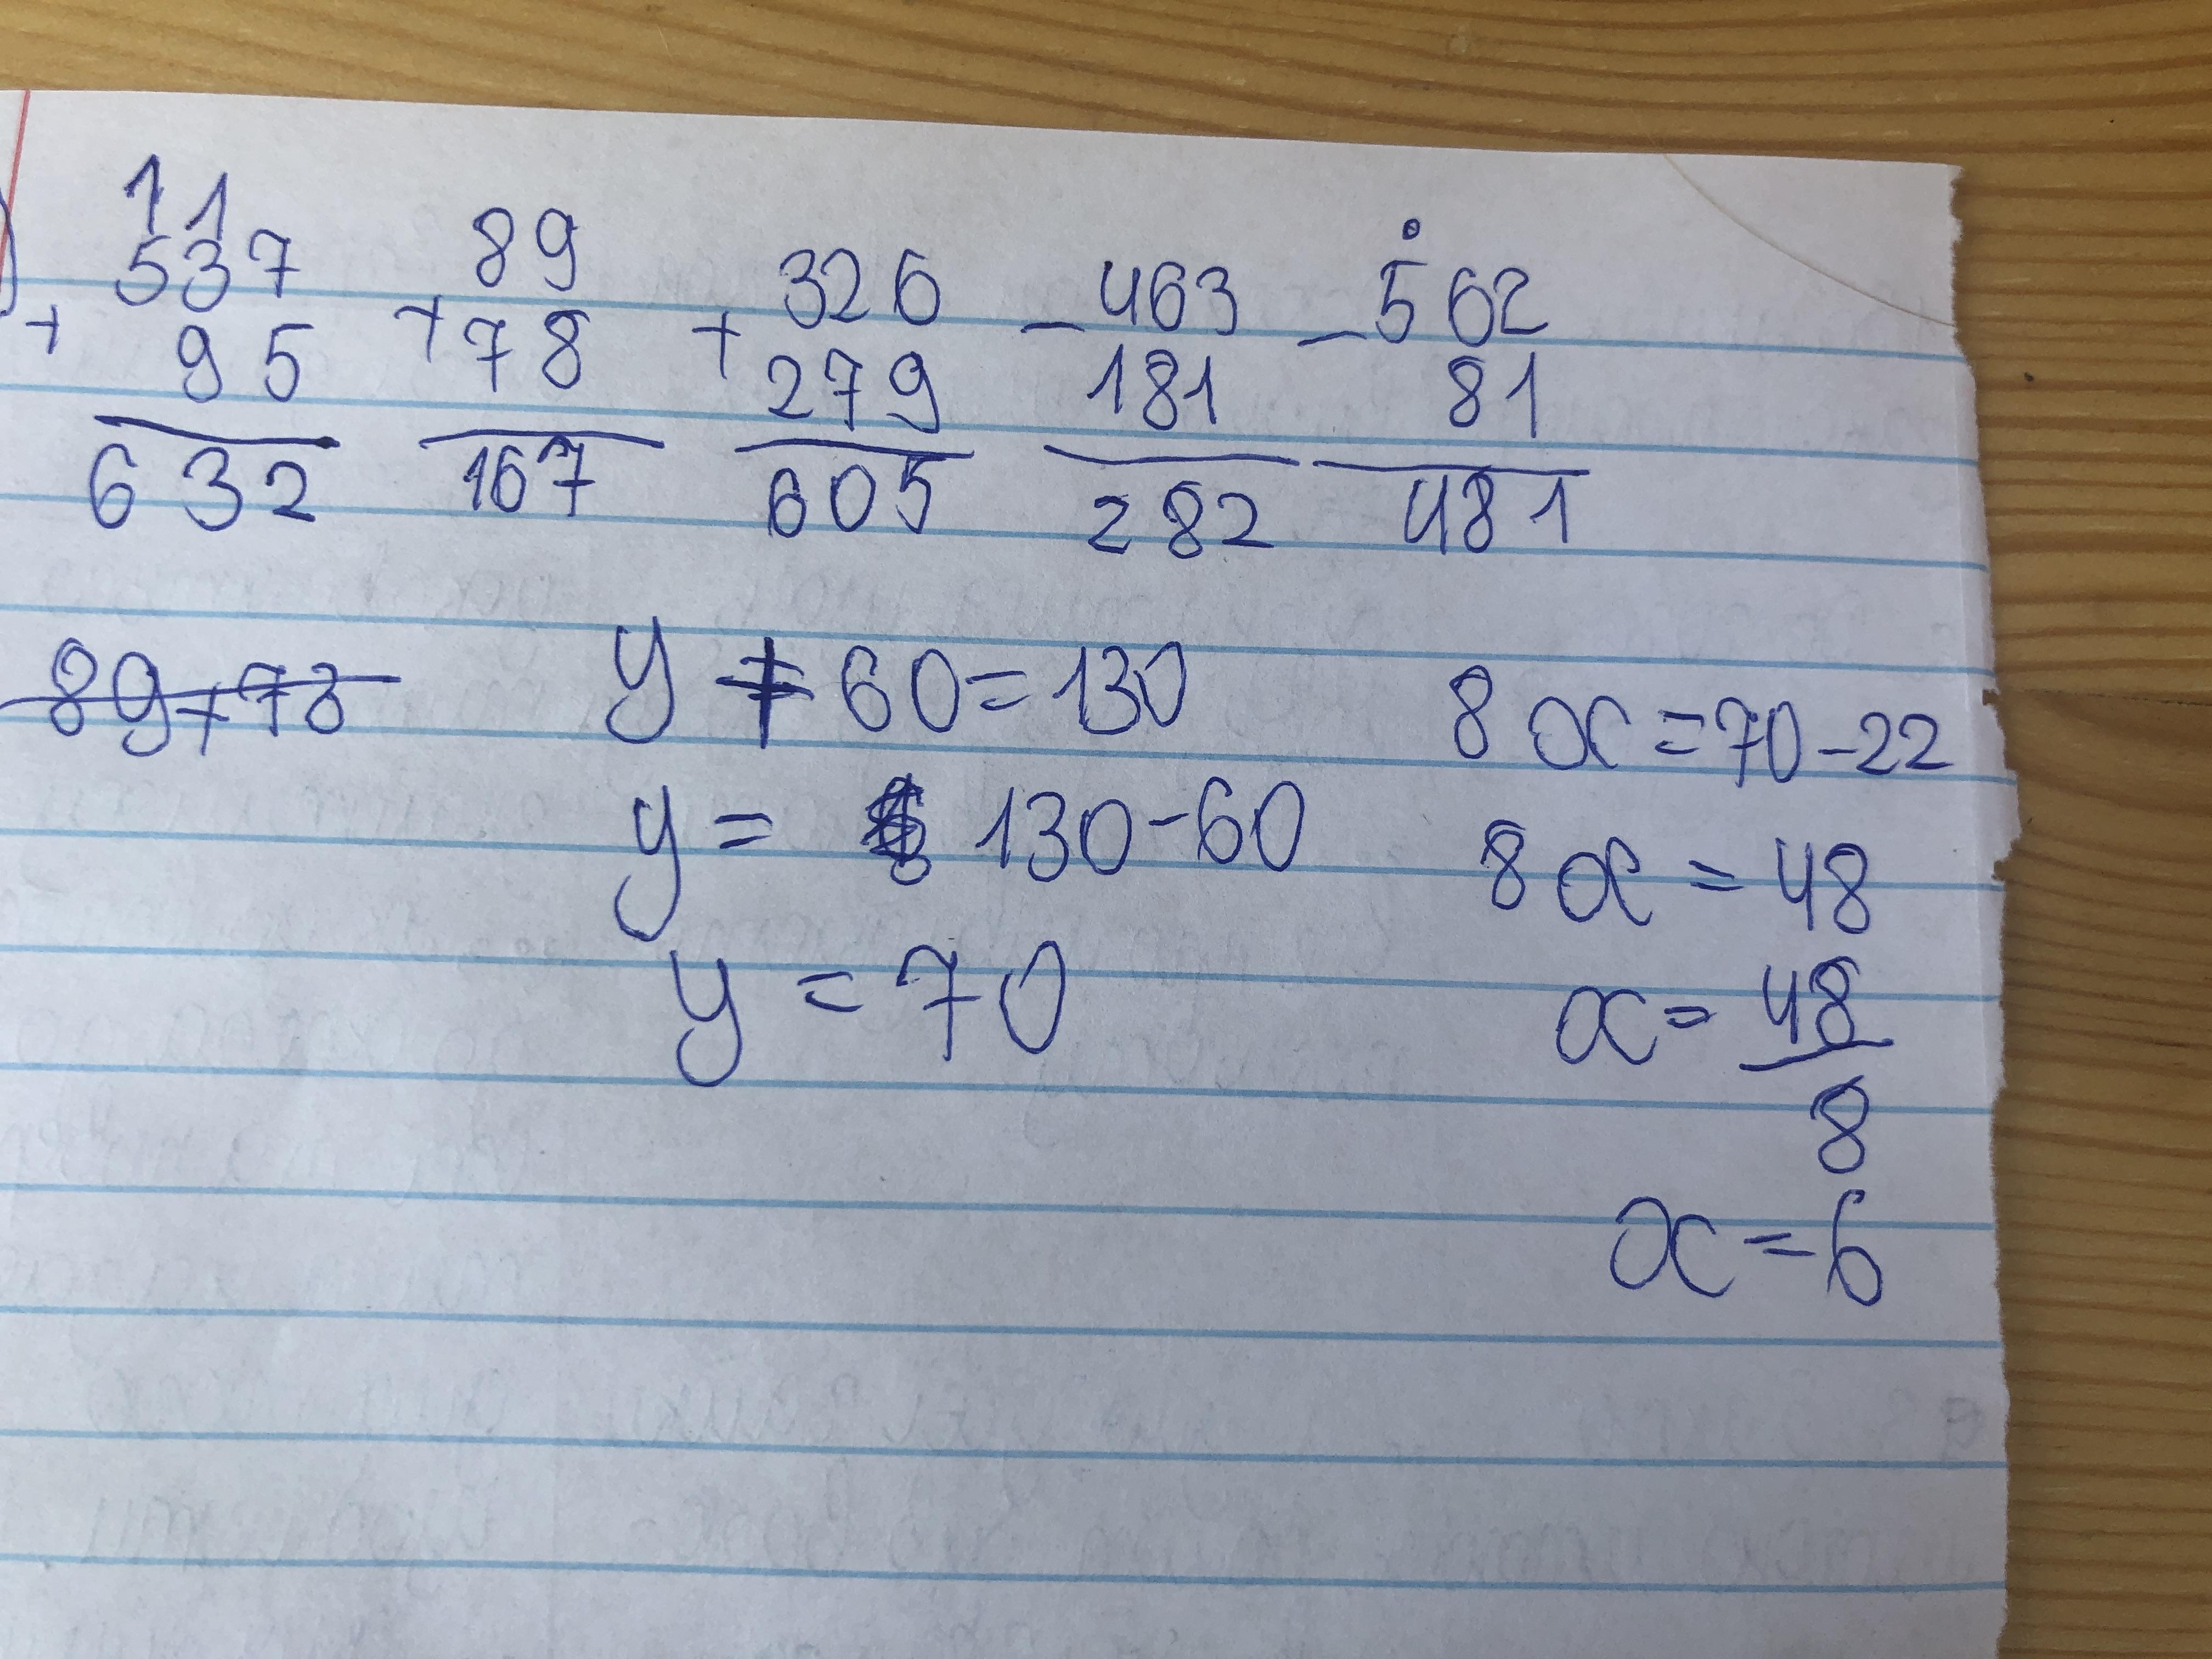 11
537 89 326 463 562
+ 95 + 78 + 279 - 181 - 81
632 167 605 282 481
89+78 y + 60=130 8x=70-22
y= 130-60 8x=48
y=70 x=48
8
x=6